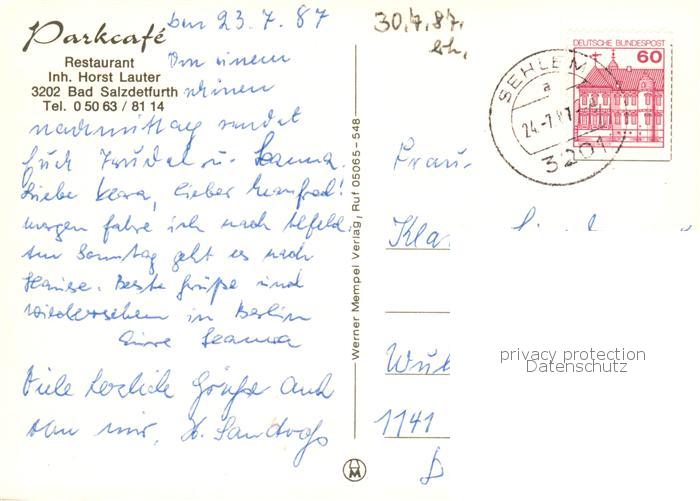 Parkcafé
Restaurant
Inh. Horst Lauter
3202 Bad Salzdetfurth
Tel. 0 50 63 / 81 14
den 23. 7. 87
Von einem
schönen
nachmittag sendet
Euch Trudel u.
Liebe Vera, lieber Manfred!
morgen fahre ich nach Alfeld.
Am Sonntag geht es nach
Hause. Beste Grüße und
wiedersehen in Berlin
Eure
Viele herzliche Grüße auch
von mir,
Werner Mempel Verlag, Ruf 05065-548
30.7.87.
DEUTSCHE BUNDESPOST
60
SEHLEM
a
24.-7.87
3201
Frau
Kla
Wuh
1141
privacy protection
Datenschutz